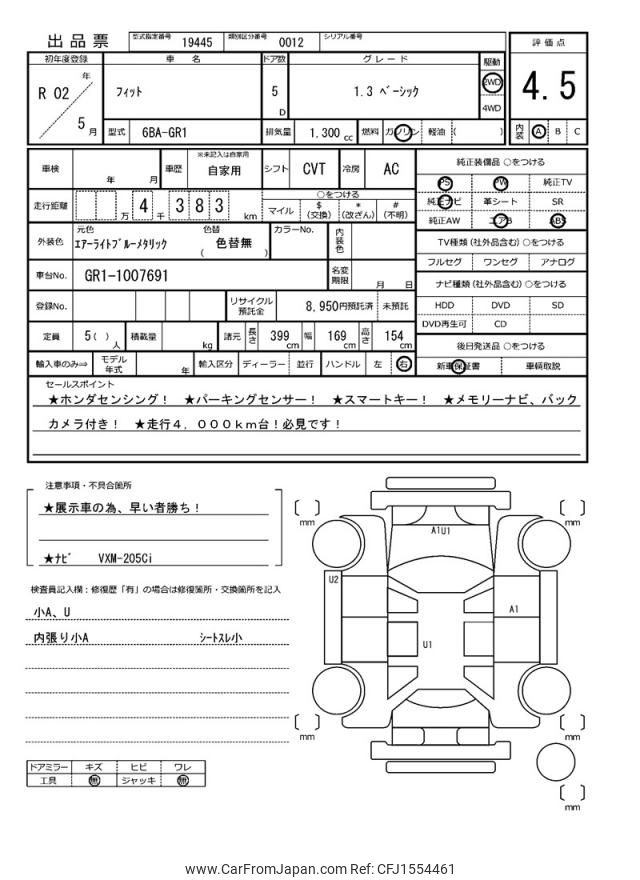 出品票 型式指定番号 19445 類別区分番号 0012 シリアル番号
初年度登録 車名 ドア数 グレード 駆動 評価点
R 02 年 5 月 フィット 5 D 1.3 ﾍﾞｰｼｯｸ 2WD 4WD 4.5
型式 6BA-GR1 排気量 1,300 cc 燃料 ガソリン 軽油 ( ) 内装 A B C
車検 年 月 車歴 ※未記入は自家用 自家用 シフト CVT 冷房 AC
走行距離 万 4 千 3 8 3 km ○をつける
マイル $ (交換) * (改ざん) # (不明)
外装色 元色 ｴｱｰﾗｲﾄﾌﾞﾙｰﾒﾀﾘｯｸ 色替 ( 色替無 ) カラーNo. 内装色
車台No. GR1-1007691 名変期限 月 日
登録No. リサイクル預託金 8,950円預託済 未預託
定員 5 ( ) 人 積載量 kg 諸元 長さ 399 cm 幅 169 cm 高さ 154 cm
輸入車のみ⇨ モデル年式 年 輸入区分 ディーラー 並行 ハンドル 左 右
純正装備品 ○をつける
PS PW 純正TV
純正ナビ 革シート SR
純正AW エアB ABS
TV種類(社外品含む)○をつける
フルセグ ワンセグ アナログ
ナビ種類(社外品含む)○をつける
HDD DVD SD
DVD再生可 CD
後日発送品 ○をつける
新車保証書 車輌取説
セールスポイント
★ホンダセンシング！ ★パーキングセンサー！ ★スマートキー！ ★メモリーナビ、バック
カメラ付き！ ★走行4，000km台！必見です！
注意事項・不具合箇所
★展示車の為、早い者勝ち！
★ﾅﾋﾞ VXM-205Ci
検査員記入欄：修復歴「有」の場合は修復箇所・交換箇所を記入
小A、U
内張り小A ｼｰﾄｽﾚ小
ドアミラー キズ ヒビ ワレ
工具 無 ジャッキ 無
mm
mm
A1U1
U2
A1
U1
mm
mm
mm
www.CarFromJapan.com Ref: CFJ1554461